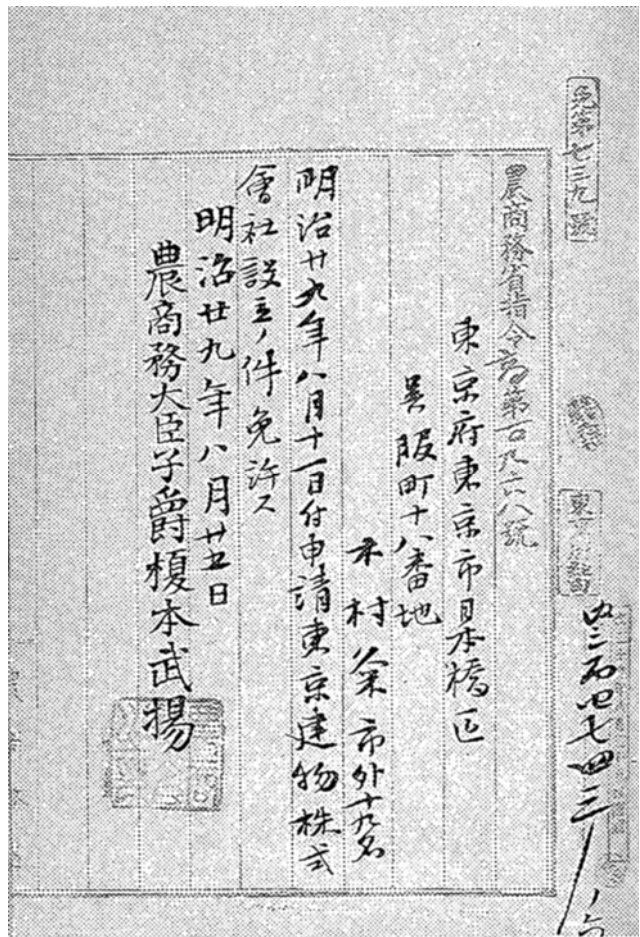 免第七三九號
農商務省指令商第百九十八號
東京府東京市日本橋區
呉服町十八番地
木村粂市外十九名
明治廿九年八月十一日付申請東京建物株式
會社設立ノ件免許ス
明治廿九年八月廿五日
農商務大臣子爵榎本武揚